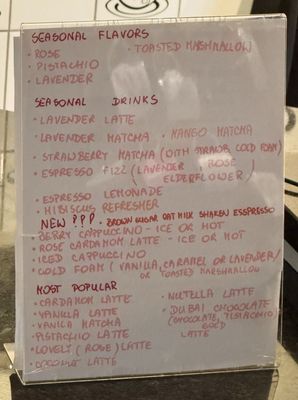 SEASONAL FLAVORS
• ROSE • TOASTED MASHMALLOW
• PISTACHIO
• LAVENDER
SEASONAL DRINKS
• LAVENDER LATTE
• LAVENDER MATCHA • MANGO MATCHA
• STRAWBERRY MATCHA (WITH STRAWB. COLD FOAM)
• ESPRESSO FIZZ (LAVENDER, ROSE
ELDERFLOWER)
• ESPRESSO LEMONADE
• HIBISCUS REFRESHER
NEW ??? • BROWN SUGAR OAT MILK SHAKEN ESSPRESSO
• BERRY CAPPUCCINO - ICE OR HOT
• ROSE CARDAMOM LATTE - ICE OR HOT
• ICED CAPPUCCINO
• COLD FOAM (VANILLA, CARAMEL OR LAVENDER/
OR TOASTED MARSHMALLOW
MOST POPULAR
• CARDAMOM LATTE • NUTELLA LATTE
• VANILLA LATTE • DUBAI CHOCOLATE
• VANILA MATCHA (CHOCOLATE, PISTACHIO)
• PISTACHIO LATTE GOLD
• LOVELY (ROSE) LATTE LATTE
• COCONUT LATTE